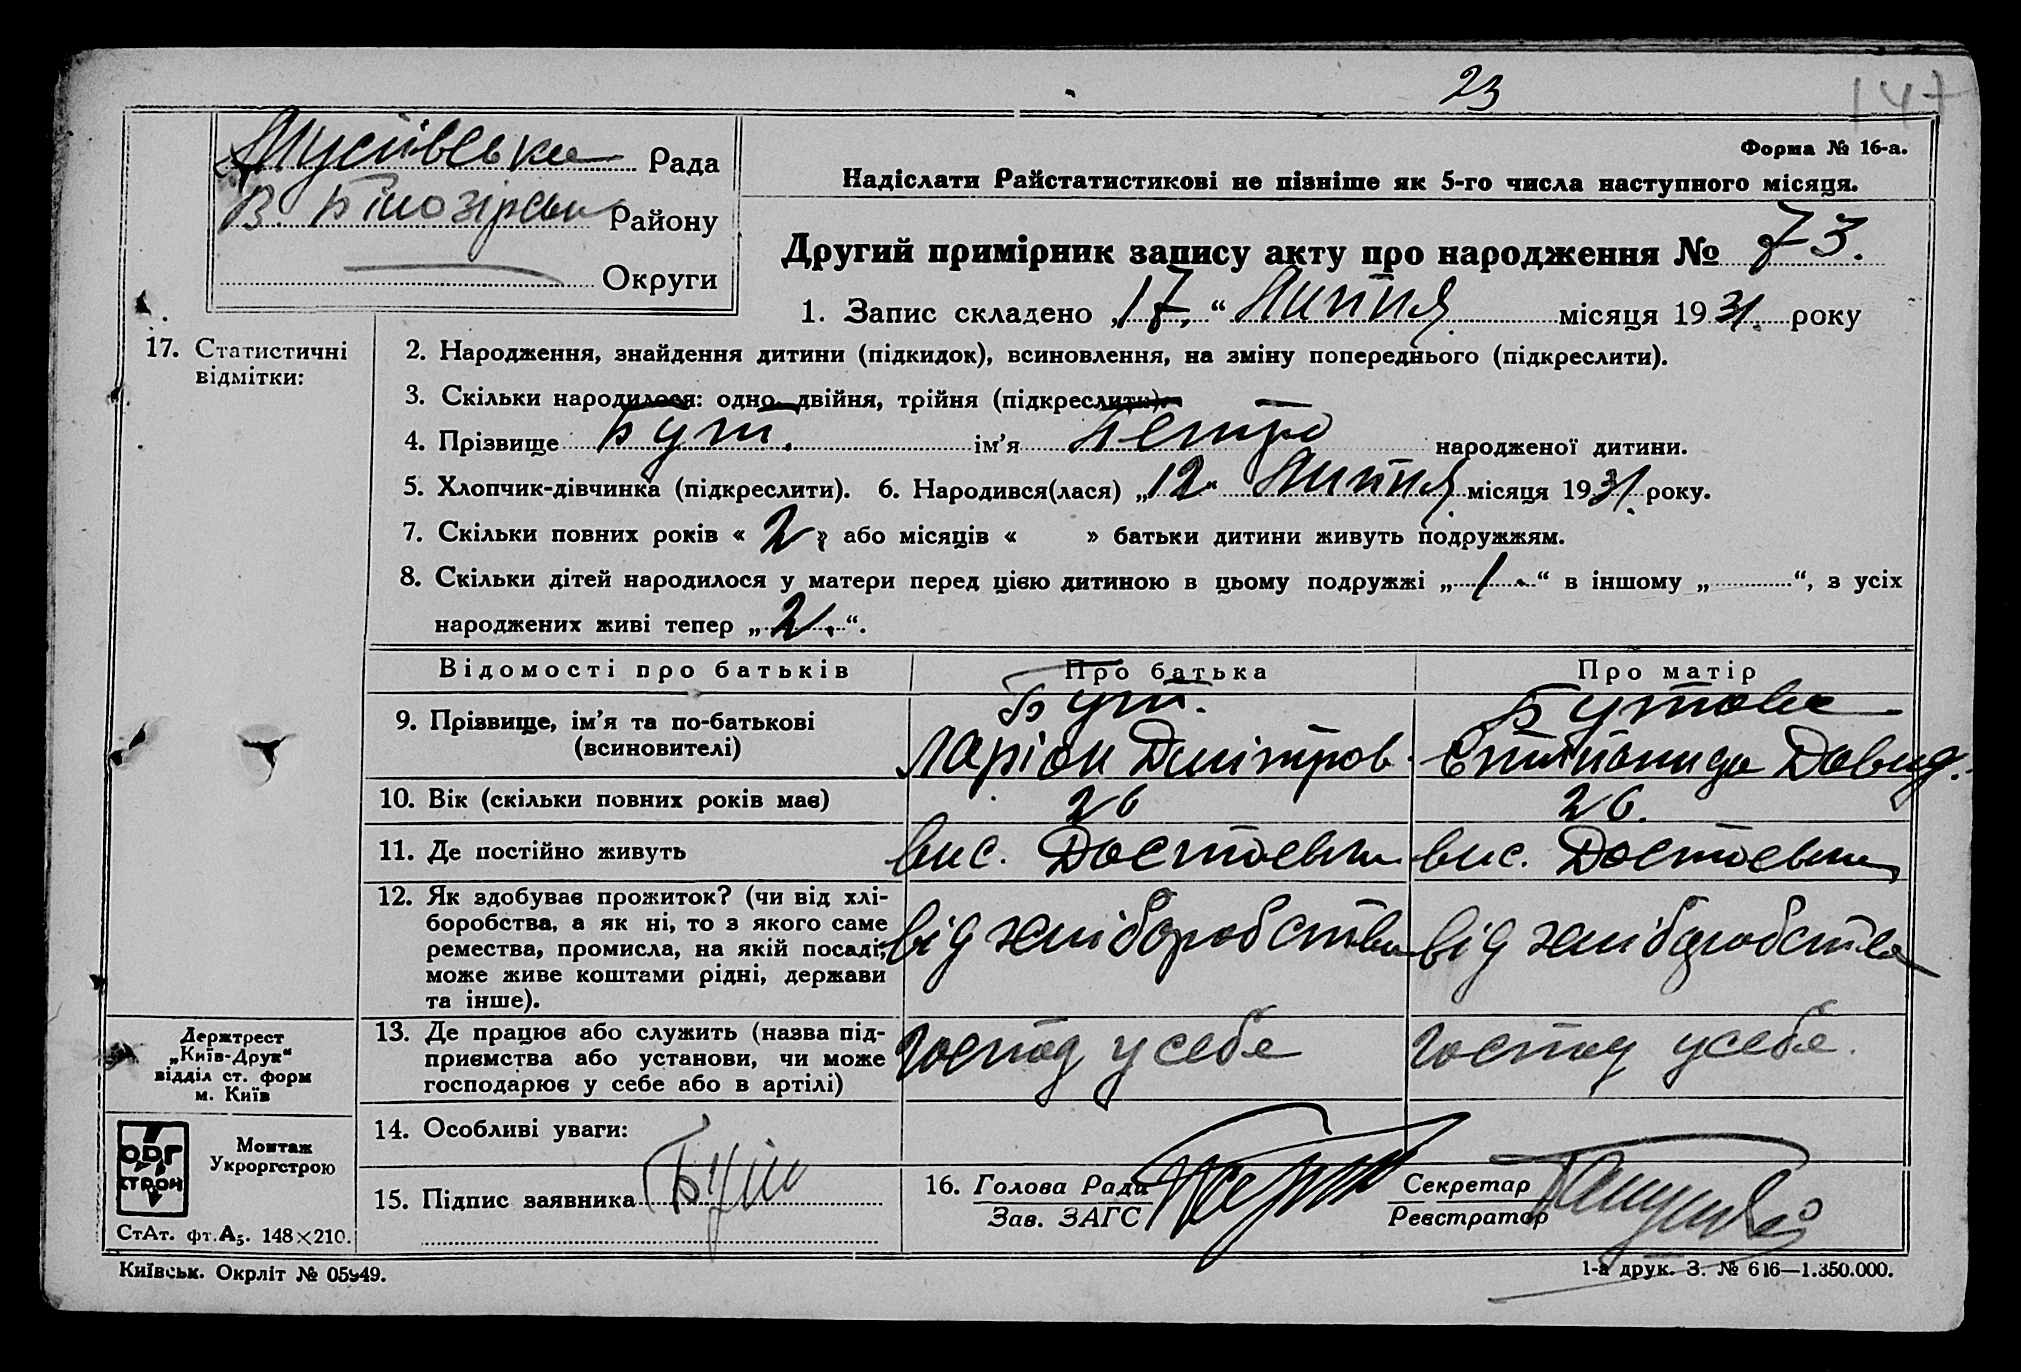 23
147
Мусіївська Рада
В. Білозірськ Району
Округи
Форма № 16-а.
Надіслати Райстатистикові не пізніше як 5-го числа наступного місяця.
Другий примірник запису акту про народження № 73.
1. Запис складено „17“ Липня місяця 1931 року
17. Статистичні
відмітки:
2. Народження, знайдення дитини (підкидок), всиновлення, на зміну попереднього (підкреслити).
3. Скільки народилося: одно, двійня, трійня (підкреслити).
4. Прізвище Бут. ім’я Петро народженої дитини.
5. Хлопчик-дівчинка (підкреслити). 6. Народився(лася) „12“ Липня місяця 1931 року.
7. Скільки повних років « 2 » або місяців « » батьки дитини живуть подружжям.
8. Скільки дітей народилося у матери перед цією дитиною в цьому подружжі „1“ в іншому „ “, з усіх
народжених живі тепер „2.“.
Відомості про батьків Про батька Про матір
9. Прізвище, ім’я та по-батькові
(всиновителі)
Бут.
Ларіон Дмітров.
Бутова
Степанида Давид.
10. Вік (скільки повних років має) 26 26.
11. Де постійно живуть вис. Достоевка вис. Достоевка
12. Як здобуває прожиток? (чи від хлі-
боробства, а як ні, то з якого саме
ремества, промисла, на якій посаді,
може живе коштами рідні, держави
та інше).
від хліборобства від хліборобства
13. Де працює або служить (назва під-
приємства або установи, чи може
господарює у себе або в артілі)
господ у себе господ у себе.
14. Особливі уваги:
15. Підпис заявника Бут
16. Голова Ради
Зав. ЗАГС
Секретар
Реєстратор
Держтрест
„Київ-Друк“
відділ ст. форм
м. Київ
ОРГ
СТРОЙ
Монтаж
Укроргстрою
СтАт. фт. А5. 148×210.
Київськ. Окрліт № 05949.
1-а друк. З. № 616—1.350.000.